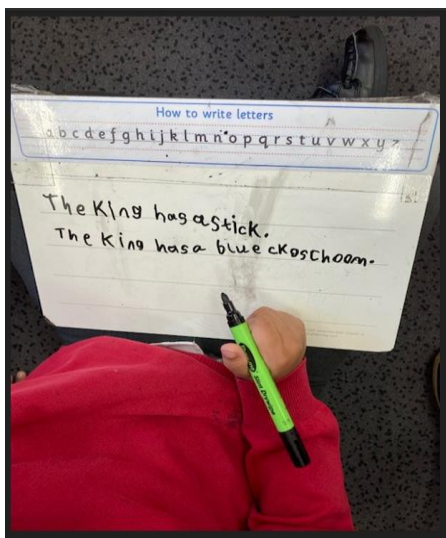 How to write letters
a b c d e f g h i j k l m n o p q r s t u v w x y z
The King has a stick.
The King has a blue ckoschoom.